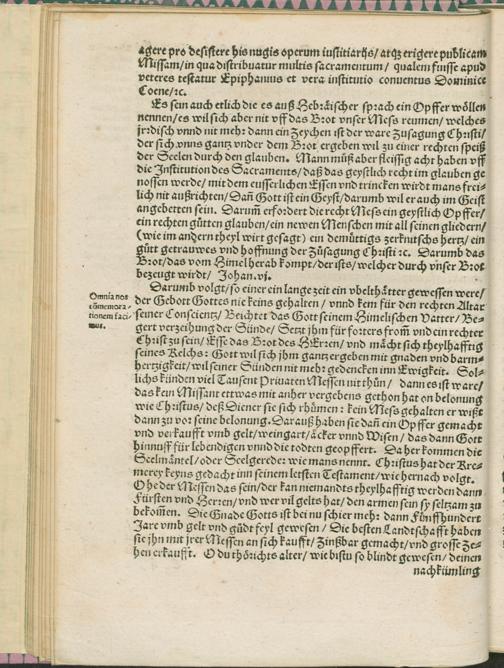 agere pro desistere his nugis operum iustitiarijs/ atqz erigere publicam
Missam/ in qua distribuatur multis sacramentum/ qualem fuisse apud
veteres testatur Epiphanius et vera institutio conuentus Dominice
Coene/ zc.
Es sein auch etlich die es auß Hebräischer sprach ein Opffer wöllen
nennen/ es wil sich aber nit vff das Brot vnser Mess reumen/ welches
jrdisch vnnd nit mehr: dann ein Zeychen ist der ware Zusagung Christi/
der sich vnns gantz vnder dem Brot ergeben wil zu einer rechten speiß
der Seelen durch den glauben. Mann můß aber fleissig acht haben vff
die Institution des Sacraments/ daß das geystlich recht im glauben ge
nossen werde/ mit dem eusserlichen Essen vnd trincken wirdt mans frei-
lich nit außrichten/ Dañ Gott ist ein Geyst/ darumb wil er auch im Geist
angebetten sein. Darum̃ erfordert die recht Mess ein geystlich Opffer/
ein rechten gůtten glauben/ ein newen Menschen mit all seinen gliedern/
(wie im andern theyl wirt gesagt) ein demüttigs zerknütschs hertz/ ein
gůt getrauwes vnd hoffnung der Zůsagung Christi zc. Darumb das
Brot/ das vom Himel herab kompt/ der ists/ welcher durch vnser Brot
bezeugt wirdt/ Johan. vj.
Darumb volgt/ so einer ein lange zeit ein vbelthätter gewessen were/
der Gebott Gottes nie keins gehalten/ vnnd kem für den rechten Altar
Omnia nos
cõmemora-
tionem faci-
mus.
seiner Conscientz/ Beichtet das Gott seinem Himelischen Vatter/ Be-
gert verzeihung der Sünde/ Setzt jhm für forters from̃ vnd ein rechter
Christ zu sein/ Esse das Brot des HErren/ vnd mächt sich theylhafftig
seines Kelchs: Gott wil sich jhm gantz ergeben mit gnaden vnd barm-
hertzigkeit/ wil seiner Sünden nit mehr gedencken inn Ewigkeit. Sol-
lichs künden viel Tausent Priuaten Messen nit thůn/ dann es ist ware/
das kein Missant ettwas mit anher vergebens gethon hat on belonung
wie Christus/ deß Diener sie sich rhůmen: kein Mess gehalten er wißt
dann zu vor seine belonung. Darauß haben sie dañ ein Opffer gemacht
vnd verkaufft vmb gelt/ weingart/ äcker vnnd Wisen/ das dann Gott
hinnuff für lebendigen vnnd die todten geopffert. Daher kommen die
Seelmäntel/ oder Seelgerede: wie mans nennt. Christus hat der Kre-
merey keyns gedacht inn seinem letsten Testament/ wie hernach volgt.
O he der Messen das sein/ der kan niemandts theylhafftig werden dann
Fürsten vnd Herren/ vnd wer vil gelts hat/ den armen sein sy seltzam zu
bekom̃en. Die Gnade Gottes ist bei nu schier mehr dann Fünffhundert
Jare vmb gelt vnd gůdt feyl gewesen/ Die besten Landtschafft haben
sie jhn mit jrer Messen an sich kaufft/ Zinßbar gemacht/ vnd grosse Ze-
hen erkaufft. O du thörichts alter/ wie bistu so blindt gewesen/ deinen
nachkümling